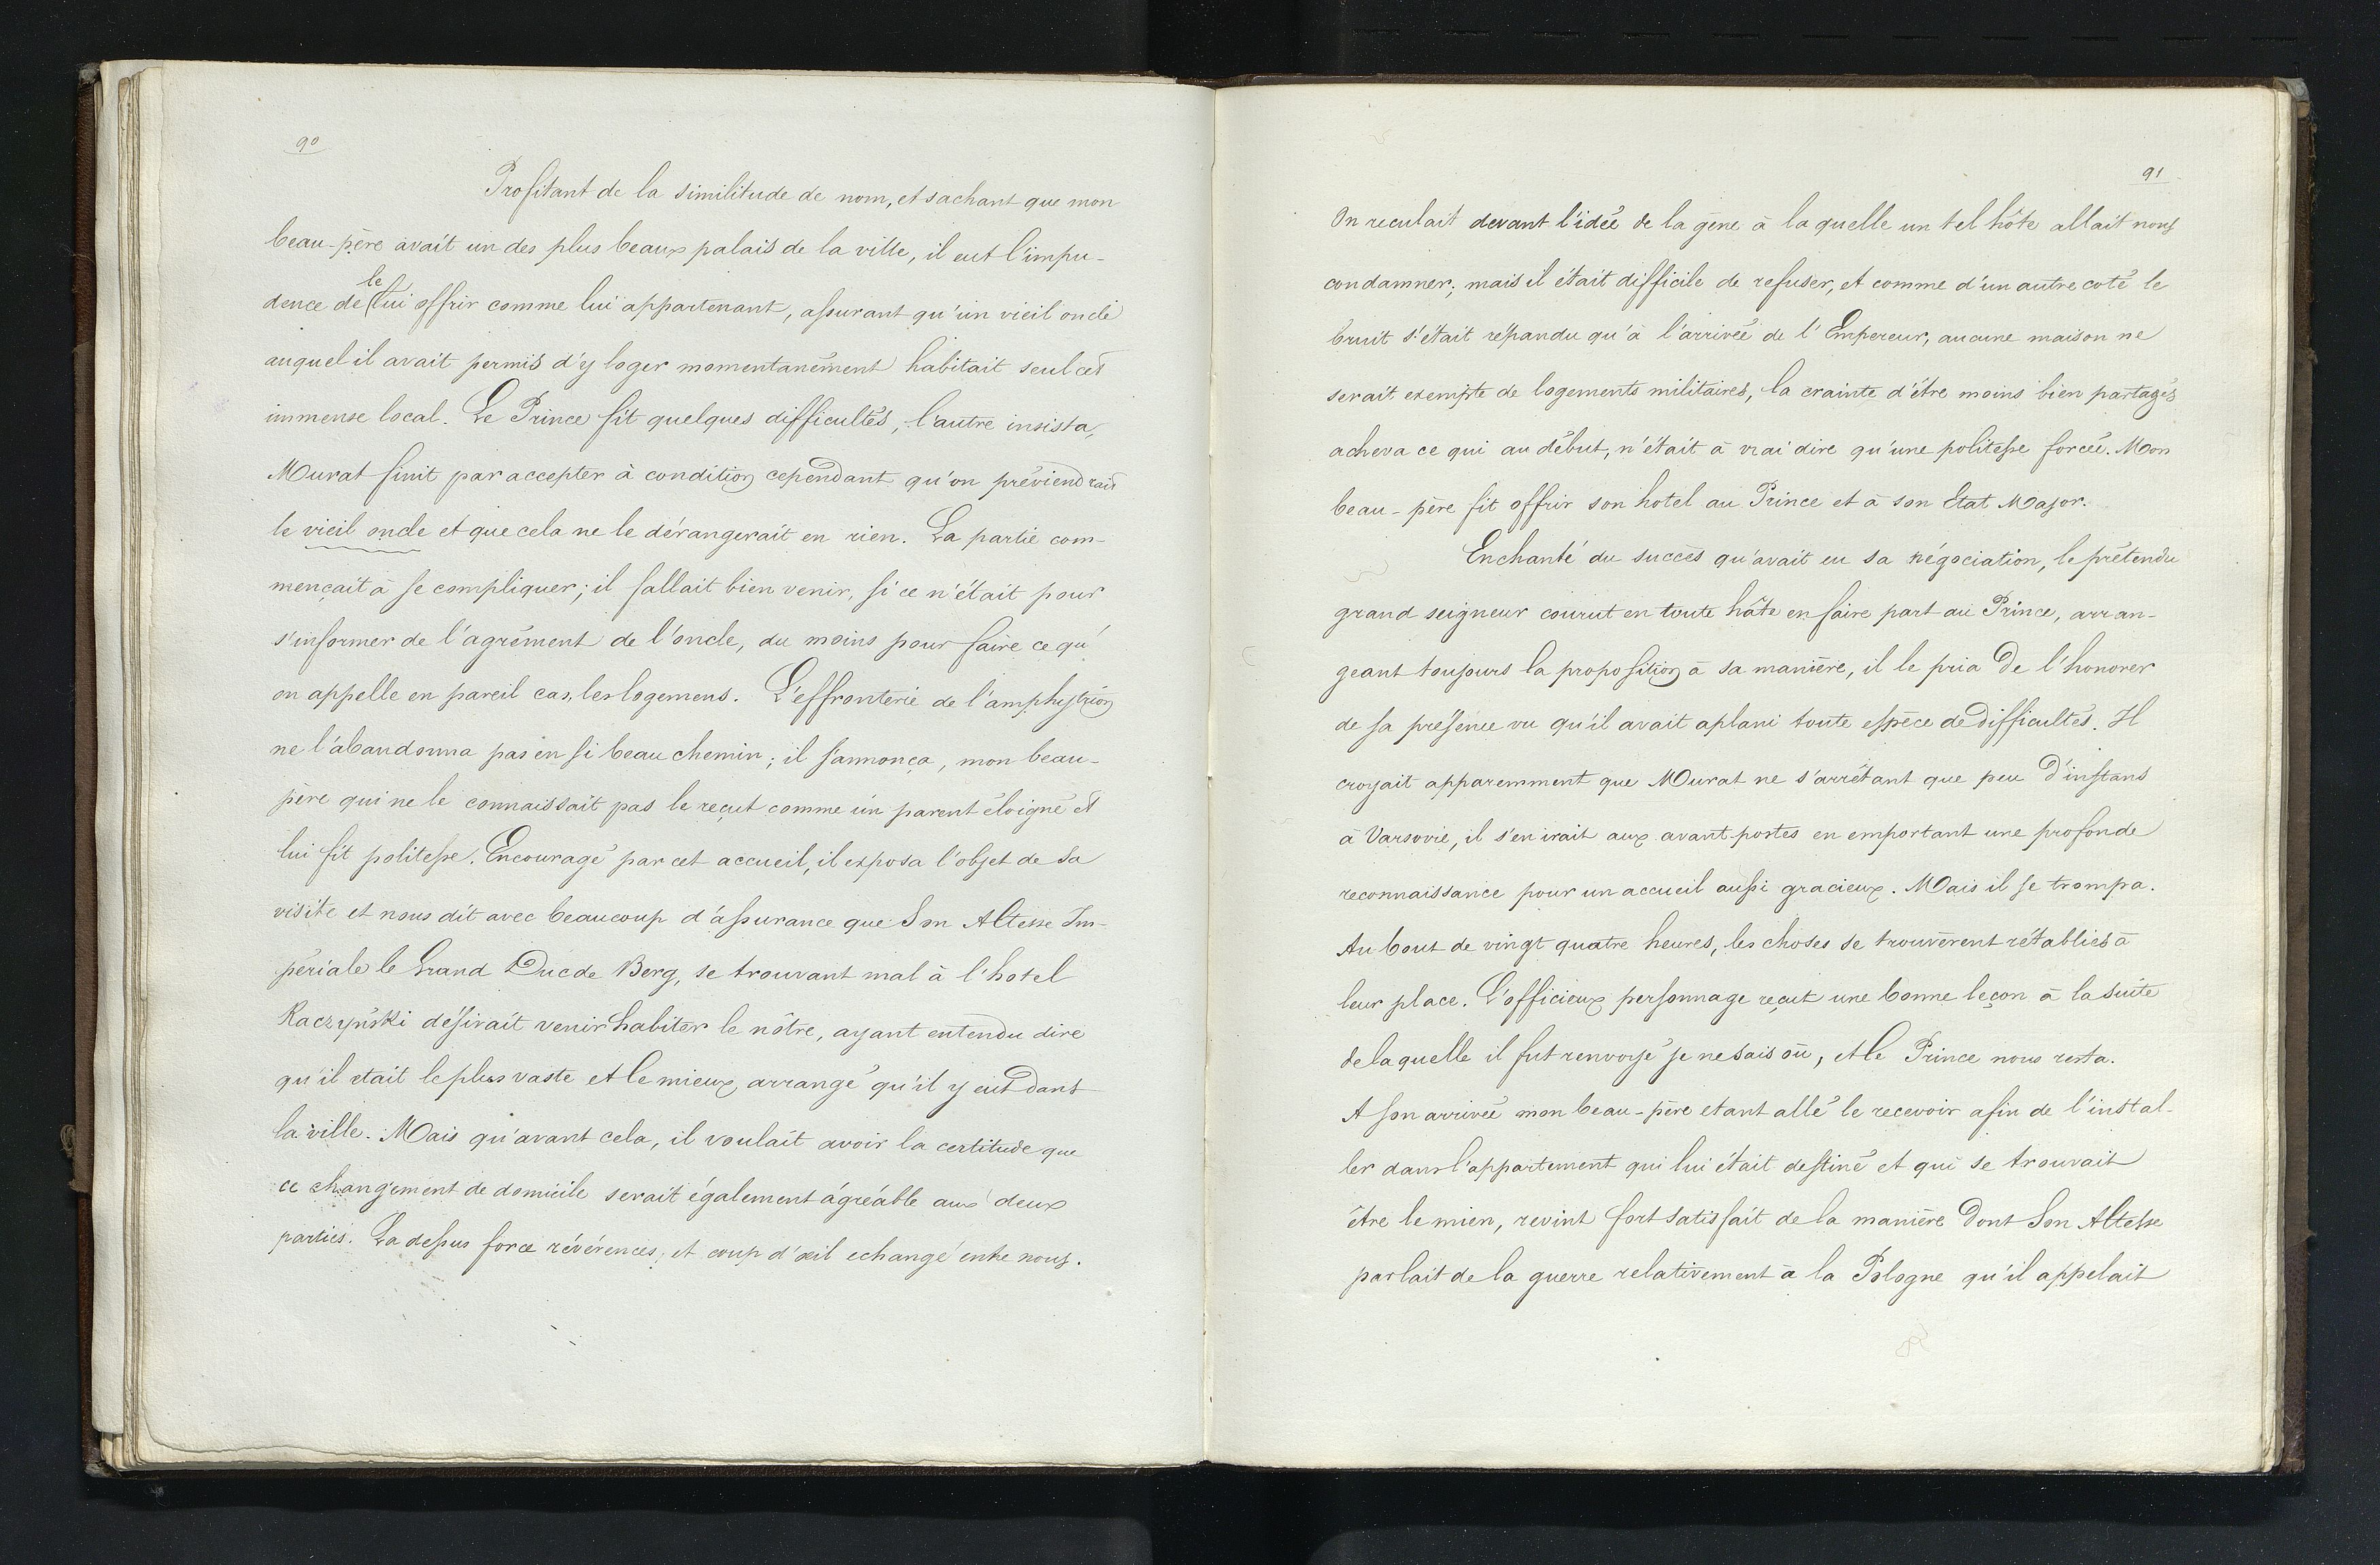 90
Profitant de la similitude de nom, et sachant que mon
beau-père avait un des plus beaux palais de la ville, il eut l'impu-
le
dence de lui offrir comme lui appartenant, assurant qu'un vieil oncle
auquel il avait permis d'y loger momentanément habitait seul cet
immense local. Le Prince fit quelques difficultés, l'autre insista,
Murat finit par accepter à condition cependant qu'on préviendrait
le vieil oncle et que cela ne le dérangerait en rien. La partie com-
mençait à se compliquer; il fallait bien venir, si ce n'était pour
s'informer de l'agrément de l'oncle, du moins pour faire ce qu'
on appelle en pareil cas, les logemens. L'effronterie de l'amphytrion
ne l'abandonna pas en si beau chemin; il s'annonça, mon beau-
père qui ne le connaissait pas le reçut comme un parent éloigné et
lui fit politesse. Encouragé par cet accueil, il exposa l'objet de sa
visite et nous dit avec beaucoup d'assurance que Son Altesse Im-
périale le Grand Duc de Berg, se trouvant mal à l'hotel
Raczyński désirait venir habiter le nôtre, ayant entendu dire
qu'il etait le plus vaste et le mieux arrangé qu'il y eut dans
la ville. Mais qu'avant cela, il voulait avoir la certitude que
ce changement de domicile serait également agréable aux deux
parties. La dessus force révérences, et coup d'œil echangé entre nous.
91
On reculait devant l'idée de la gêne à la quelle un tel hôte allait nous
condamner; mais il était difficile de refuser, et comme d'un autre coté le
bruit s'était répandu qu'à l'arrivée de l'Empereur, aucune maison ne
serait exempte de logements militaires, la crainte d'être moins bien partagés
acheva ce qui au début, n'était à vrai dire qu'une politesse forcée. Mon
beau-père fit offrir son hotel au Prince et à son Etat Major.
Enchanté du succès qu'avait eu sa négociation, le prétendu
grand seigneur courut en toute hâte en faire part au Prince, arran-
geant toujours la proposition à sa manière, il le pria de l'honorer
de sa présence vu qu'il avait aplani toute espèce de difficultés. Il
croyait apparemment que Murat ne s'arrêtant que peu d'instans
à Varsovie, il s'en irait aux avant-postes en emportant une profonde
reconnaissance pour un accueil aussi gracieux. Mais il se trompa.
Au bout de vingt quatre heures, les choses se trouvèrent rétablies à
leur place. L'officieux personnage reçut une bonne leçon à la suite
de laquelle il fut renvoyé je ne sais où, et le Prince nous resta.
A son arrivée mon beau-père etant allé le recevoir afin de l'instal-
ler dans l'appartement qui lui était destiné et qui se trouvait
être le mien, revint fort satisfait de la manière dont Son Altesse
parlait de la guerre relativement à la Pologne qu'il appelait